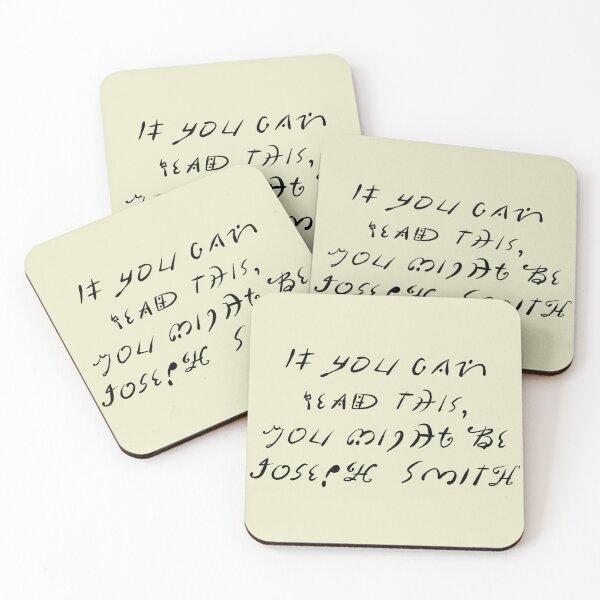 IF YOU CAN
READ THIS,
IF YOU CAN
READ THIS,
YOU MIGHT BE
JOSEPH SMITH
IF YOU CAN
READ THIS,
YOU MIGHT BE
JOSEPH S
IF YOU CAN
READ THIS,
YOU MIGHT BE
JOSEPH SMITH